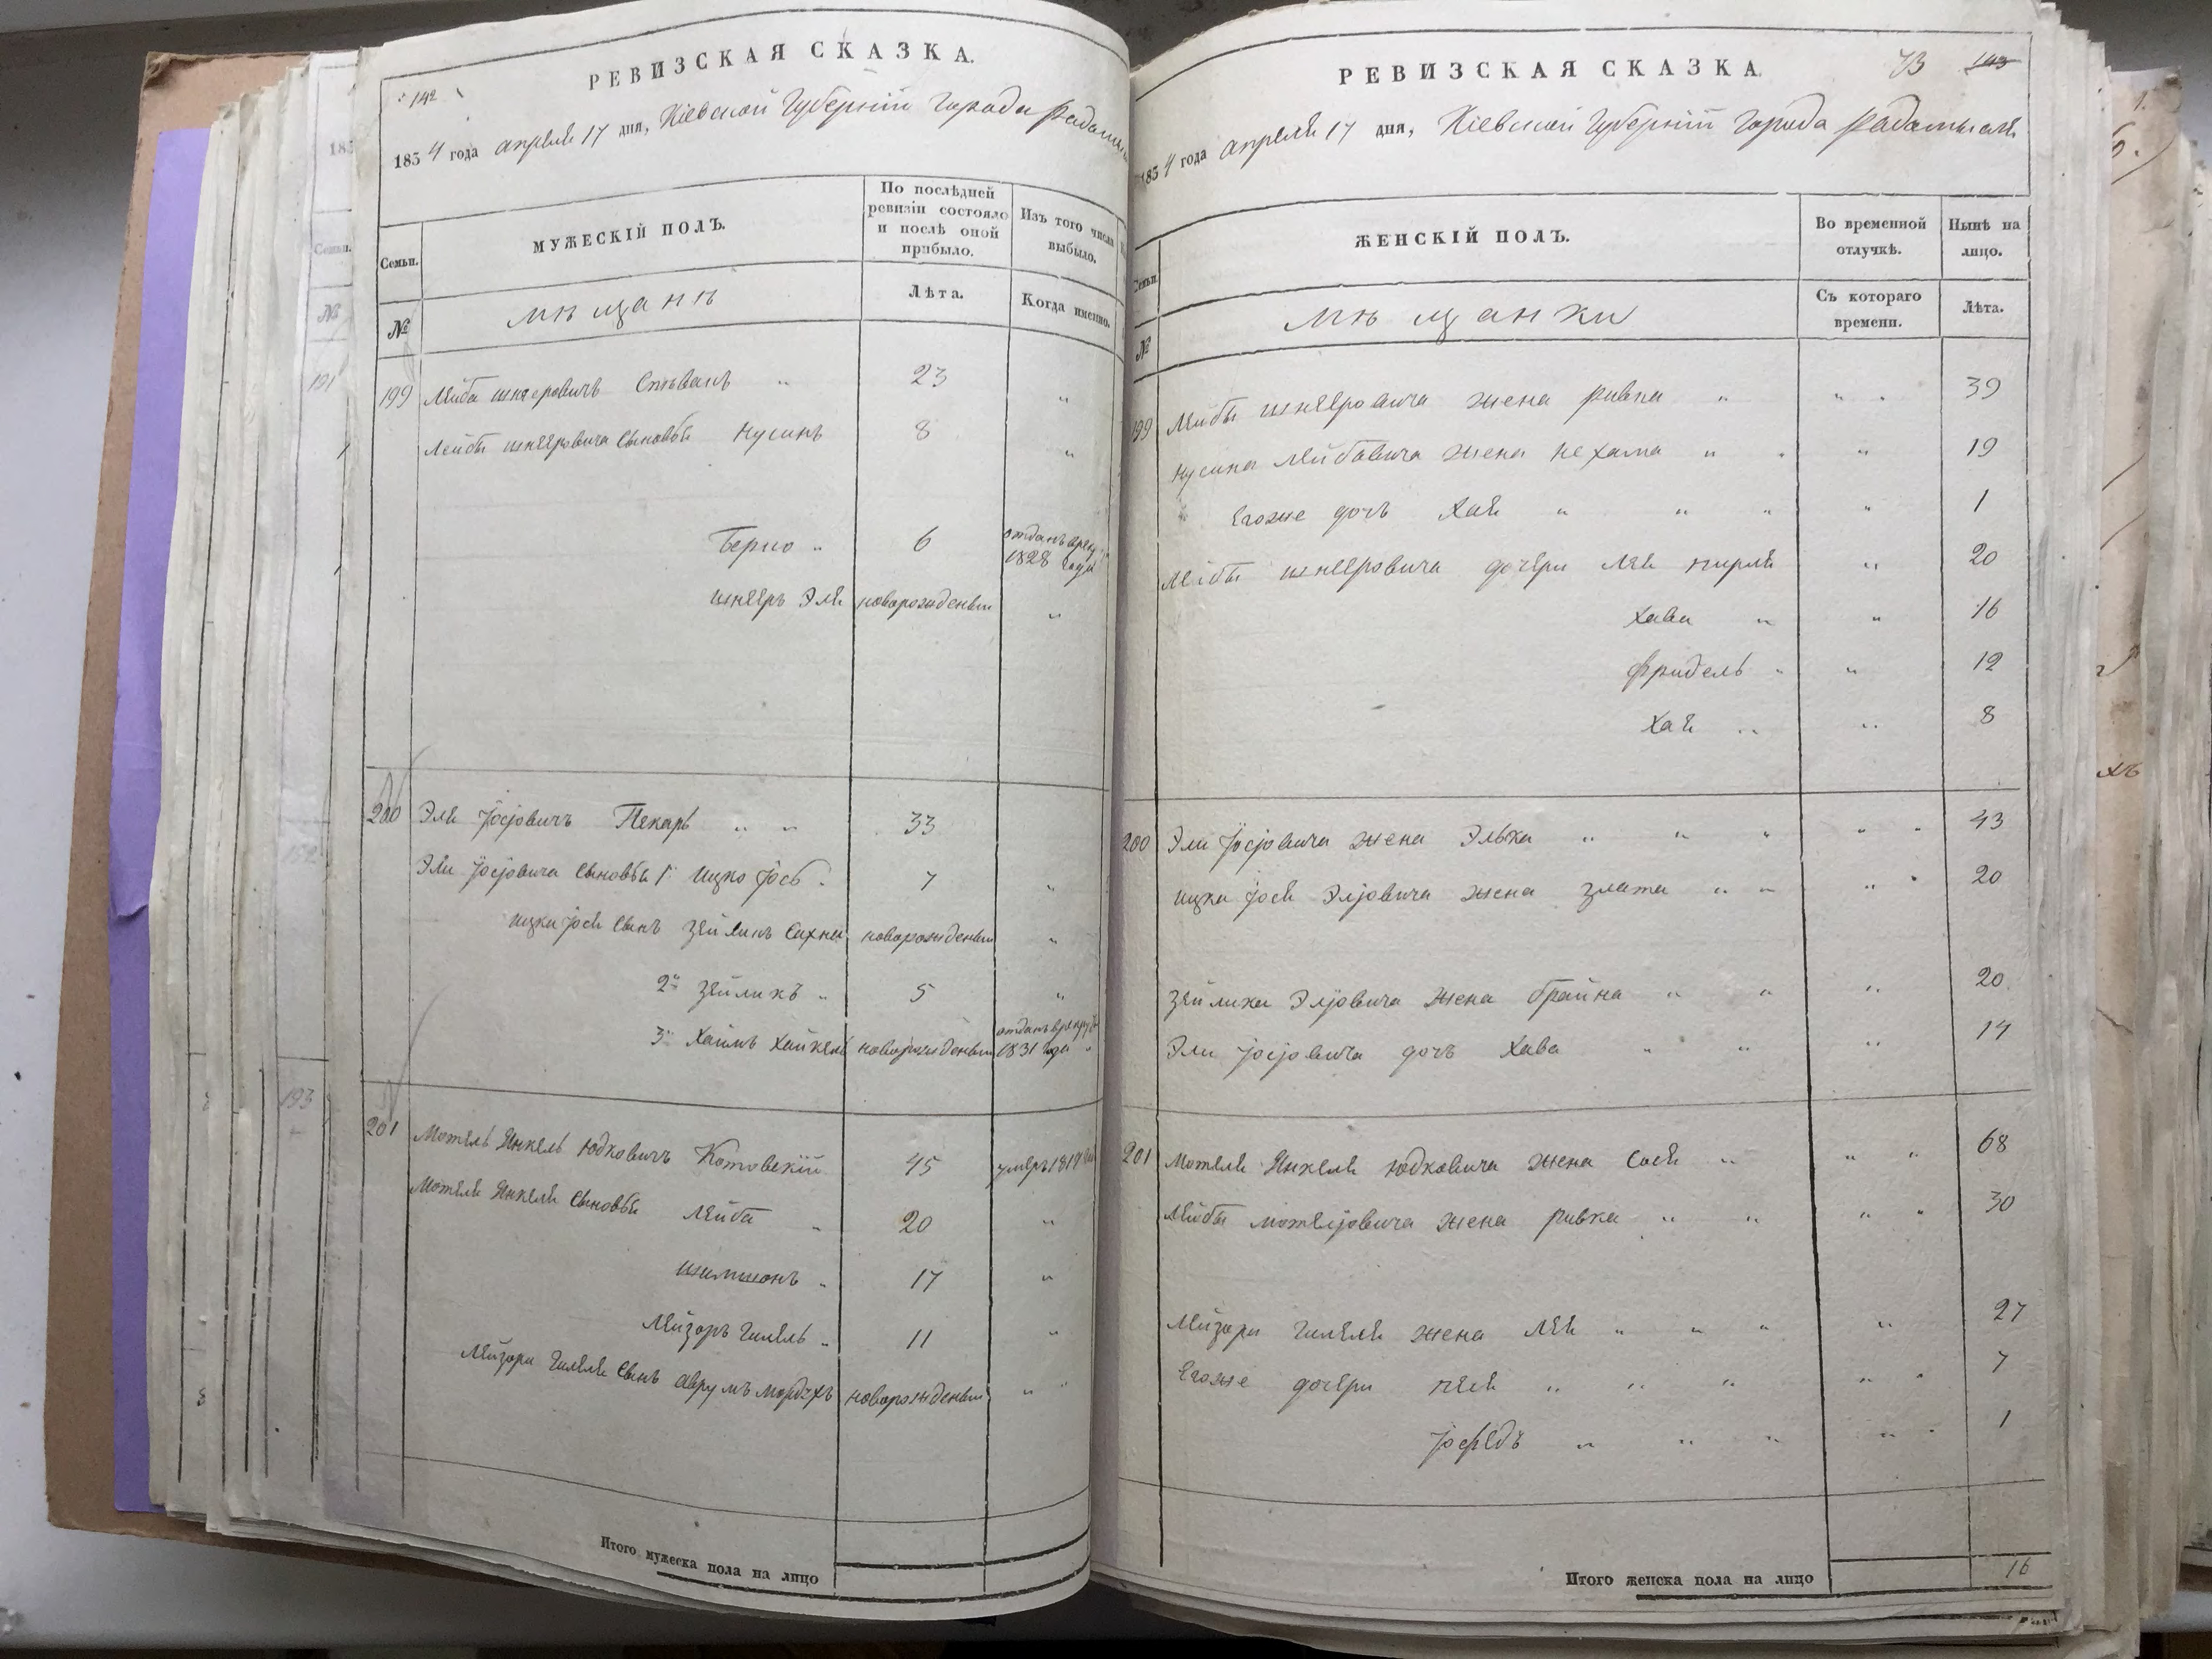 142
РЕВИЗСКАЯ СКАЗКА.
1834 года апреля 17 дня, Кіевской Губерніи Города
Семьи.
МУЖЕСКІЙ ПОЛЪ.
По послѣдней ревизіи состояло и послѣ оной прибыло.
Изъ того числа выбыло.
№
мѣщанѣ
Лѣта.
Когда именно.
199 Лейба шнееровичъ Спѣвакъ " 23 "
Лейбы шнееровича Сыновья Нусинъ 8 "
Берко " 6 отданъ
1828 года
шнееръ Эля новорожденый "
200 Эля Іосіовичъ Пекарь " " 33
Эли Іосіовича Сыновья 1й Ицко Іось 7 "
ицки Іося Сынъ новорожденый "
2й Зейликъ " 5 "
3й Хаимъ Хайкель новорожденый отданъ
1831 года "
201 Мотель Янкель Юдковичъ Котовскій 45 умеръ
Мотеля Янкеля Сыновья Лейба " 20 "
шимшонъ " 17 "
Лейзоръ Гилель " 11 "
Лейзора Гилеля Сынъ Аврумъ новорожденый " "
Итого мужеска пола на лицо
РЕВИЗСКАЯ СКАЗКА.
73 143
1834 года апреля 17 дня, Кіевской Губерніи Города Радомысля
Семьи.
ЖЕНСКІЙ ПОЛЪ.
Во временной отлучкѣ.
Нынѣ на лицо.
№
мѣщанки
Съ котораго времени.
Лѣта.
199 Лейбы шнееровича жена ривка " " " 39
Нусина Лейбовича жена Нехама " " " 19
Егоже дочь Хая " " " " 1
Лейбы шнееровича дочери Лея пирля " 20
Хава " " 16
фридель " " 12
Хая " " 8
200 Эли Іосіовича жена Элька " " " " " 43
ицки Іося Эліовича жена злата " " " " 20
Зейлика Эліовича жена брайна " " " 20
Эли Іосіовича дочь Хава " " " 14
201 Мотеля Янкеля юдковича жена Сося " " " 68
Лейбы мотеліовича жена ривка " " " " 30
Лейзора Гилеля жена Лея " " " " 27
Егоже дочери песя " " " " " 7
" " " " " 1
Итого женска пола на лицо 16